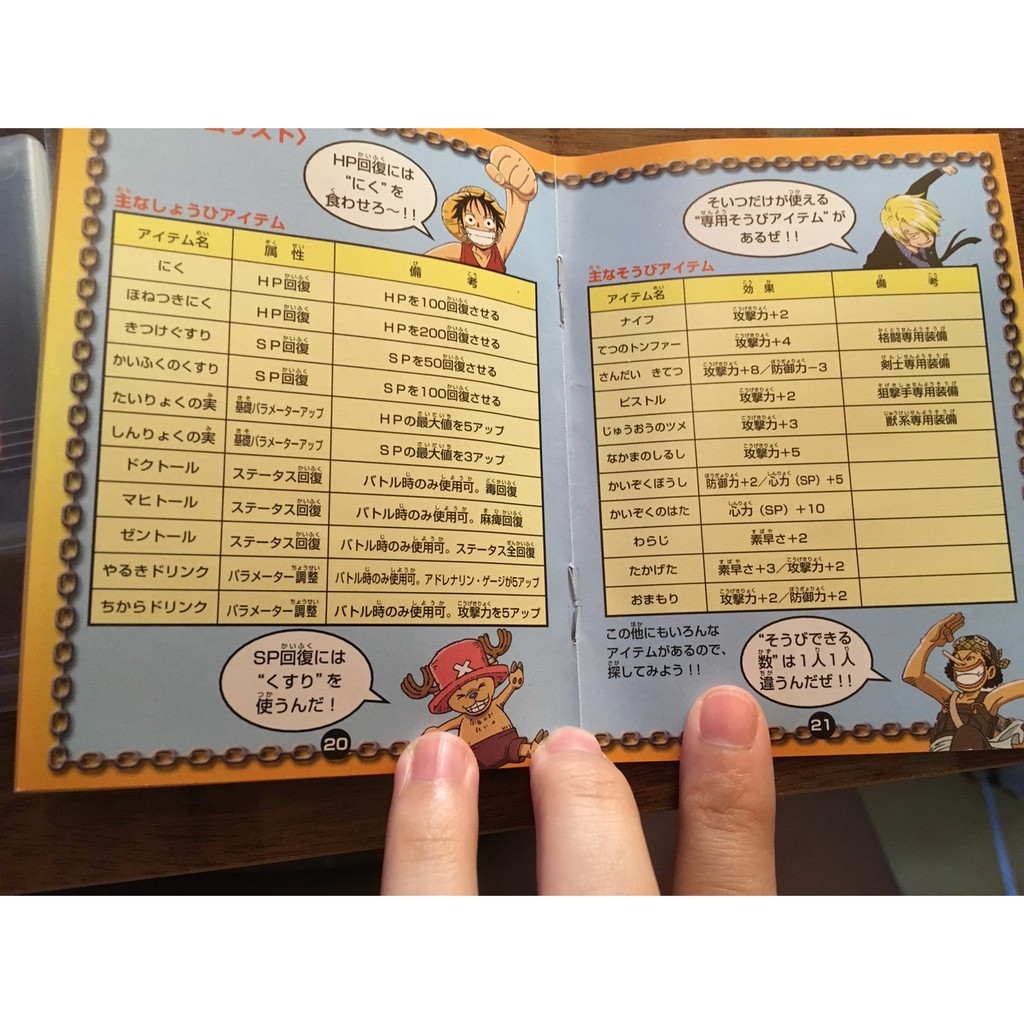 リスト〉
HP回復には
“にく”を
食わせろ〜!!
主なしょうひアイテム
アイテム名 属性 備考
にく HP回復 HPを100回復させる
ほねつきにく HP回復 HPを200回復させる
きつけぐすり SP回復 SPを50回復させる
かいふくのくすり SP回復 SPを100回復させる
たいりょくの実 基礎パラメーターアップ HPの最大値を5アップ
しんりょくの実 基礎パラメーターアップ SPの最大値を3アップ
ドクトール ステータス回復 バトル時のみ使用可。毒回復
マヒトール ステータス回復 バトル時のみ使用可。麻痺回復
ゼントール ステータス回復 バトル時のみ使用可。ステータス全回復
やるきドリンク パラメーター調整 バトル時のみ使用可。アドレナリン・ゲージが5アップ
ちからドリンク パラメーター調整 バトル時のみ使用可。攻撃力を5アップ
SP回復には
“くすり”を
使うんだ!
20
そいつだけが使える
“専用そうびアイテム”が
あるぜ!!
主なそうびアイテム
アイテム名 効果 備考
ナイフ 攻撃力+2
てつのトンファー 攻撃力+4 格闘専用装備
さんだい きてつ 攻撃力+8/防御力−3 剣士専用装備
ピストル 攻撃力+2 狙撃手専用装備
じゅうおうのツメ 攻撃力+3 獣系専用装備
なかまのしるし 攻撃力+5
かいぞくぼうし 防御力+2/心力(SP)+5
かいぞくのはた 心力(SP)+10
わらじ 素早さ+2
たかげた 素早さ+3/攻撃力+2
おまもり 攻撃力+2/防御力+2
この他にもいろんな
アイテムがあるので、
探してみよう!!
“そうびできる
数”は1人1人
違うんだぜ!!
21